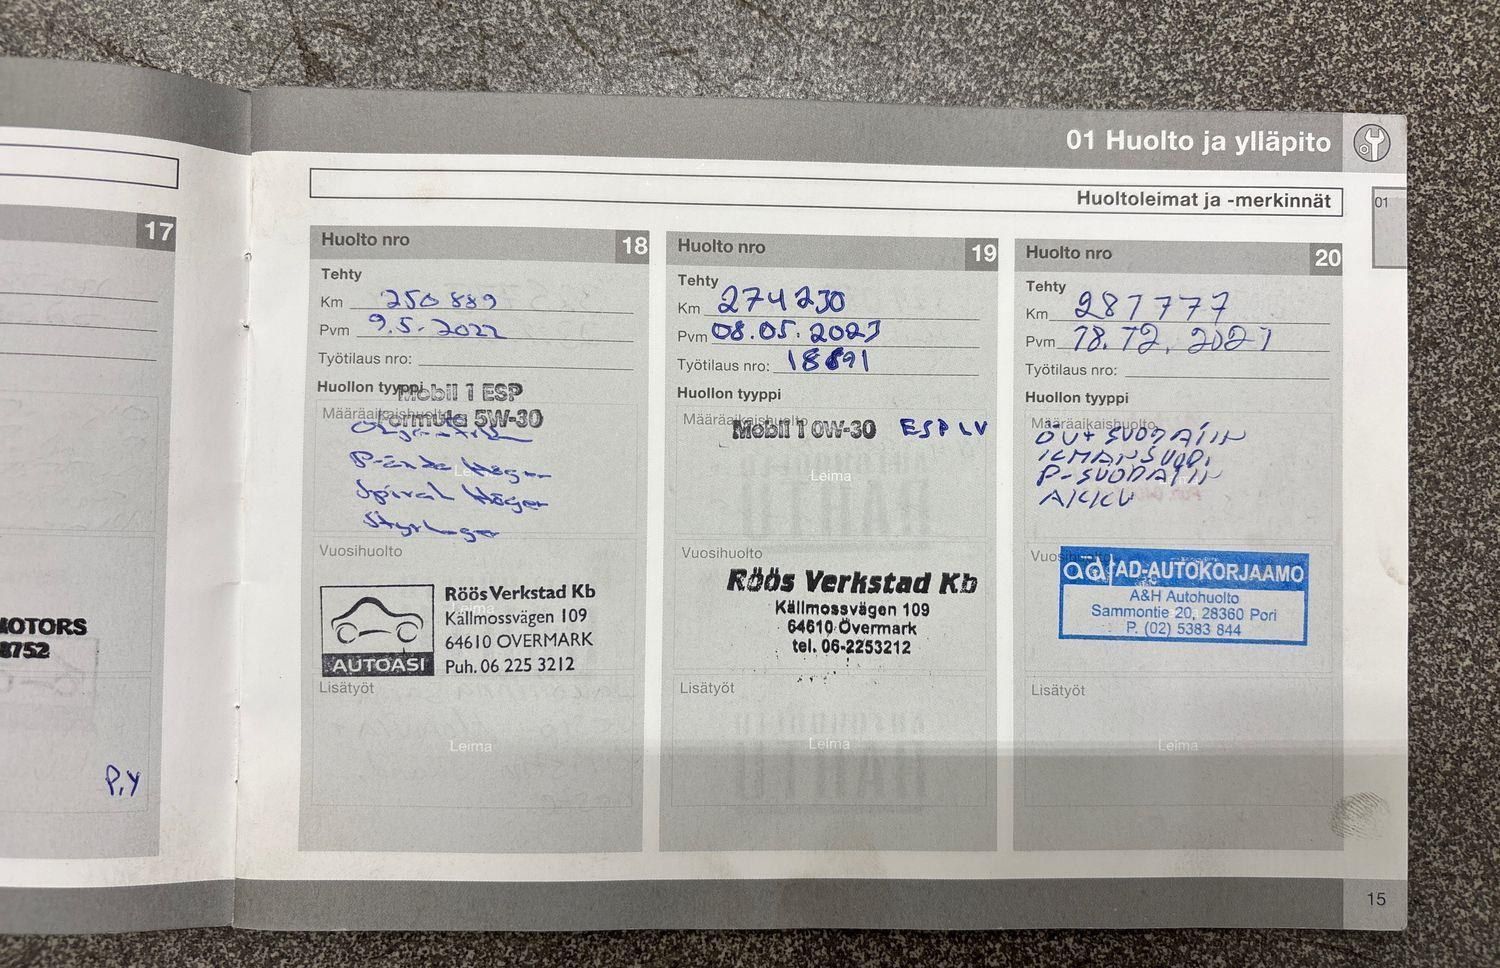 01 Huolto ja ylläpito
Huoltoleimat ja -merkinnät
01
17
MOTORS
8752
P.Y
Huolto nro 18
Tehty
Km 250 889
Pvm 9.5.2022
Työtilaus nro:
Huollon tyyppi
Mobil 1 ESP
Määräaikaishuolto
Formula 5W-30
Höger
Spiral Höger
Leima
Vuosihuolto
Röös Verkstad Kb
Källmossvägen 109
64610 ÖVERMARK
Puh. 06 225 3212
AUTOASI
Leima
Lisätyöt
Leima
Huolto nro 19
Tehty
Km 274230
Pvm 08.05.2023
Työtilaus nro: 18891
Huollon tyyppi
Määräaikaishuolto
Mobil 1 0W-30 ESP LV
Leima
Vuosihuolto
Röös Verkstad Kb
Källmossvägen 109
64610 Övermark
tel. 06-2253212
Lisätyöt
Leima
Huolto nro 20
Tehty
Km 281777
Pvm 18.12.2023
Työtilaus nro:
Huollon tyyppi
Määräaikaishuolto
ÖV+SUODATIN
ILMANSUOD.
P-SUODATIN
AKKU
Vuosihuolto
ad AD-AUTOKORJAAMO
A&H Autohuolto
Sammontie 20, 28360 Pori
P. (02) 5383 844
Lisätyöt
Leima
15